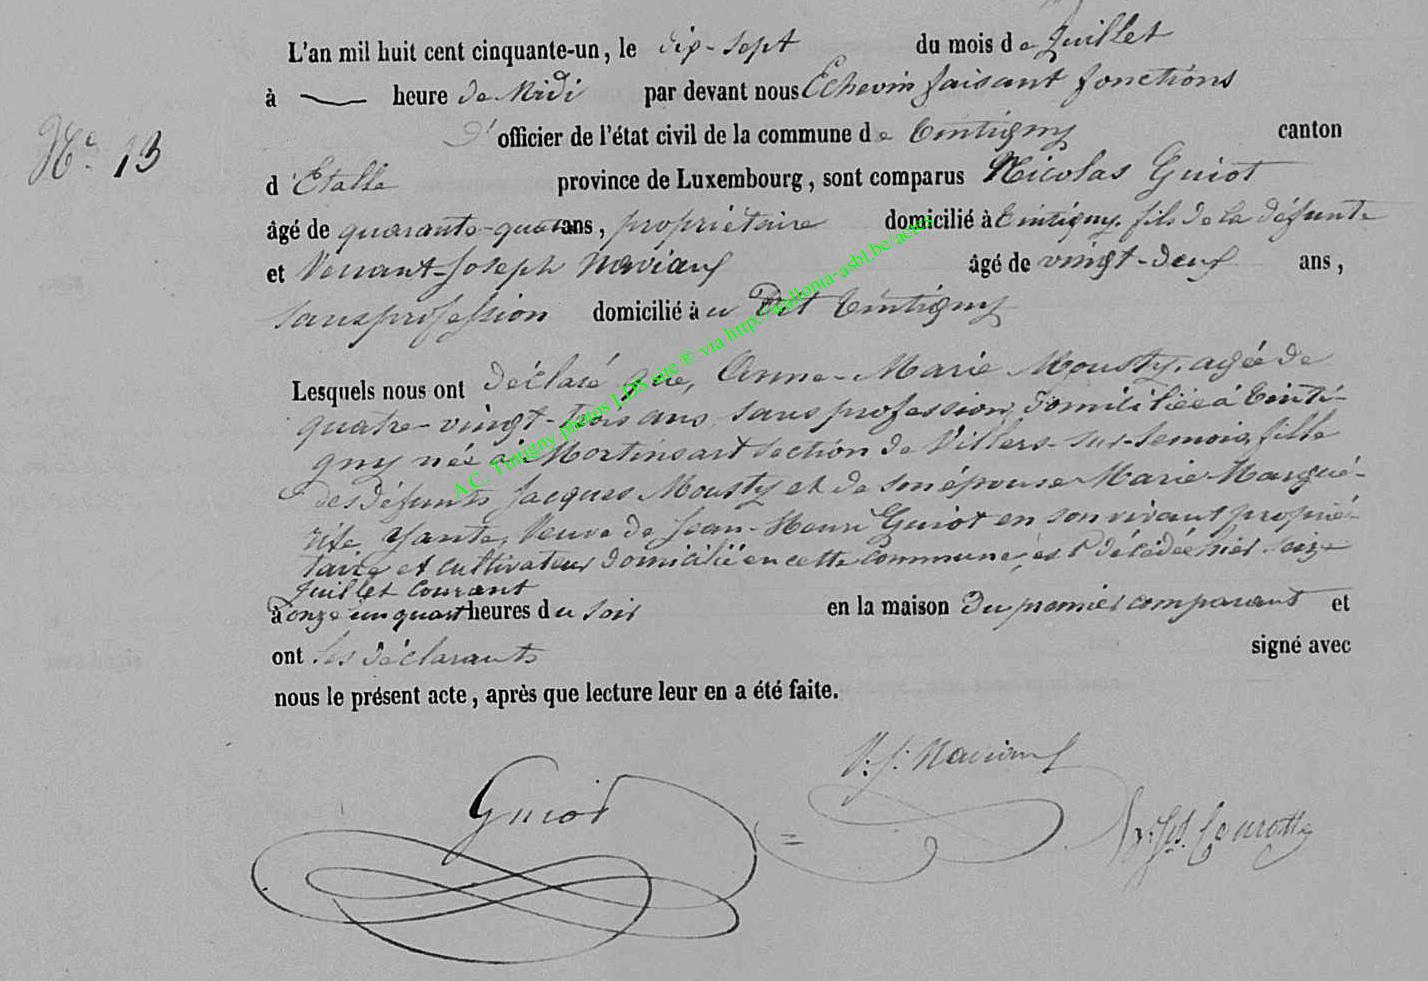 L'an mil huit cent cinquante-un, le dix-sept du mois de Juillet
à heure de Midi par devant nous Echevin faisant fonctions
N° 13
d'officier de l'état civil de la commune de Tintigny canton
d'Etalle province de Luxembourg, sont comparus Nicolas Guiot
âgé de quarante-quatre ans, propriétaire domicilié à Tintigny, fils de la défunte
et Venant-Joseph Naviaux âgé de vingt-deux ans,
sans profession domicilié à u Dit Tintigny
Lesquels nous ont déclaré que, Anne-Marie Mousty, agée de
quatre-vingt-trois ans, sans profession, domiciliée à Tinti-
gny née à Mortinsart section de Villers-sur-Semois, fille
des défunts Jacques Mousty et de son épouse Marie-Margué-
rite Yante, Veuve de Jean-Henri Guiot en son vivant proprié-
taire et cultivateur domicilié en cette commune, est décédée hier seize
Juillet courant
à onze un quart heures du soir en la maison du premier comparant et
ont les déclarants signé avec
nous le présent acte, après que lecture leur en a été faite.
V. J. Naviaux
Guiot
A.C. Tintigny photos LDS site ® via http://wallonia-asbl.be/actes